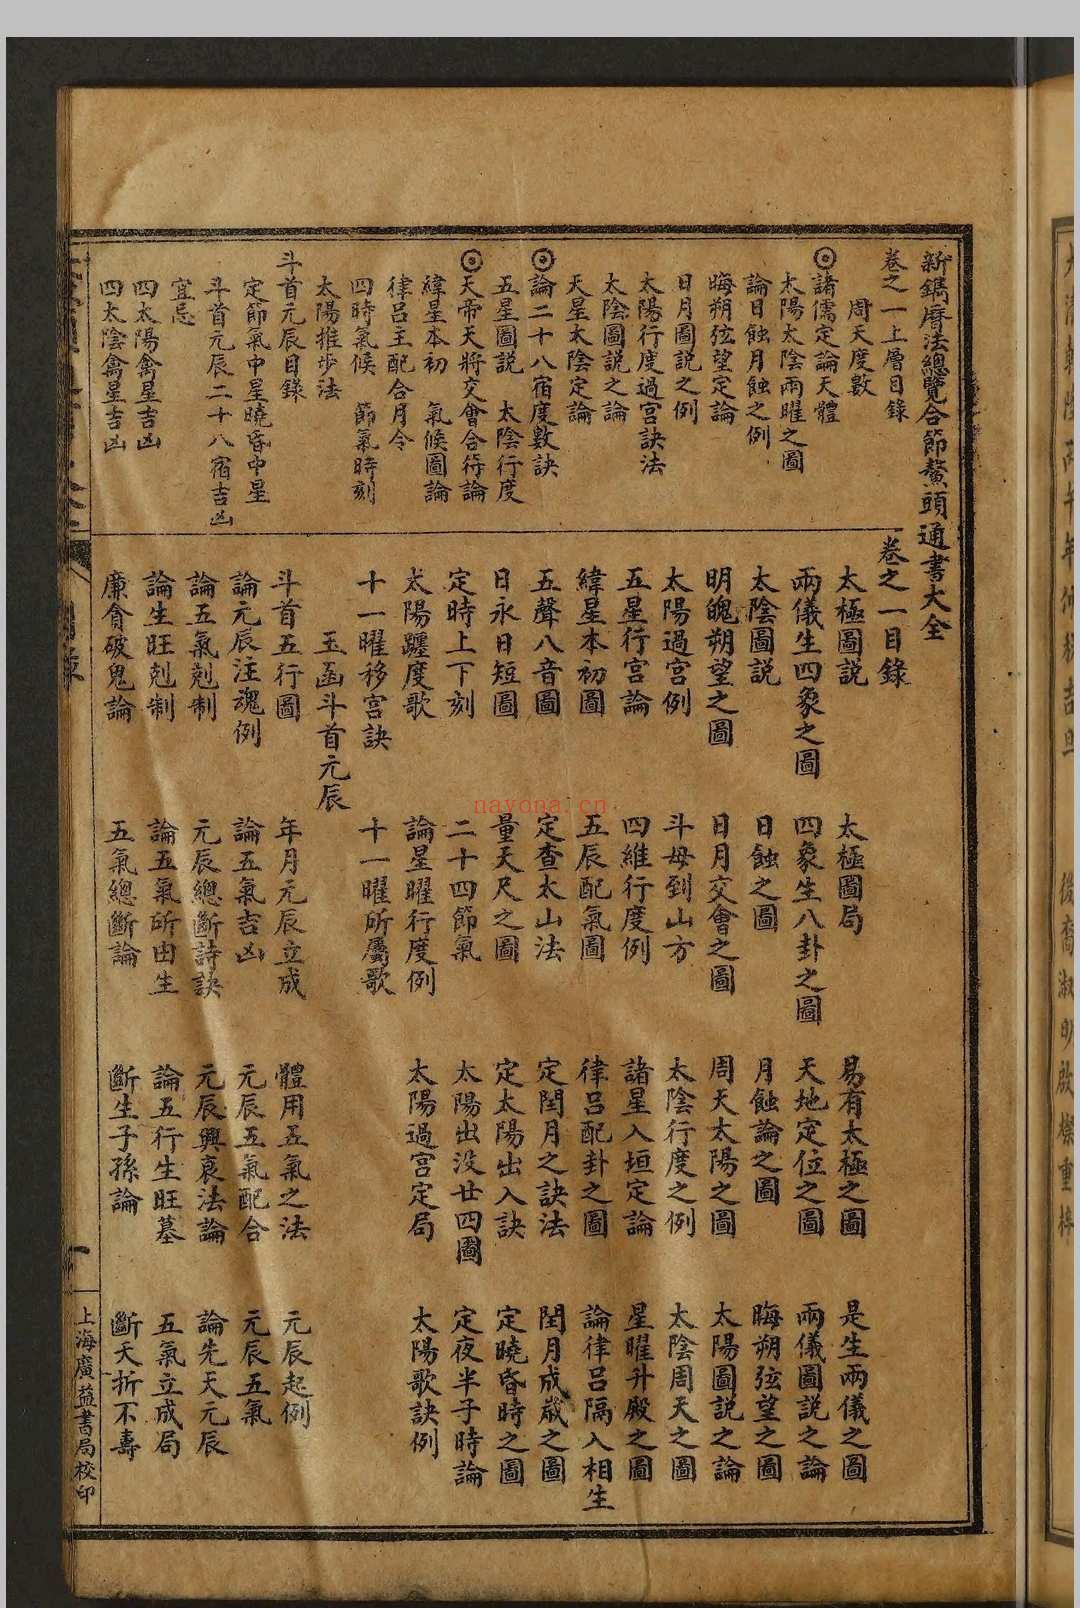 新鐫曆法總覽合節鰲頭通書大全
卷之一上層目錄
周天度數
◎諸儒定論天體
太陽太陰兩曜之圖
論日蝕月蝕之例
晦朔弦望定論
日月圖説之例
太陽行度過宮訣法
太陰圖説之論
天星太陰定論
◎論二十八宿度數訣
五星圖説 太陰行度
◎天帝天將交會合符論
緯星本初 氣候圖論
律呂主配合月令
四時氣候 節氣時刻
太陽推步法
斗首元辰目錄
定節氣中星曉昏中星
斗首元辰二十八宿吉凶
宜忌
四太陽禽星吉凶
四太陰禽星吉凶
卷之一目錄
太極圖説 太極圖局 易有太極之圖 是生兩儀之圖
兩儀生四象之圖 四象生八卦之圖 天地定位之圖 兩儀圖説之論
太陰圖説 日蝕之圖 月蝕論之圖 晦朔弦望之圖
明魄朔望之圖 日月交會之圖 周天太陽之圖 太陽圖説之論
太陽過宮例 斗母到山方 太陰行度之例 太陰周天之圖
五星行宮論 四維行度例 諸星入垣定論 星曜升殿之圖
緯星本初圖 五辰配氣圖 律呂配卦之圖 論律呂隔入相生
五聲八音圖 定查太山法 定閏月之訣法 閏月成歲之圖
日永日短圖 量天尺之圖 定太陽出入訣 定曉昏時之圖
定時上下刻 二十四節氣 太陽出沒廿四圖 定夜半子時論
太陽躔度歌 論星曜行度例 太陽過宮定局 太陽歌訣例
十一曜移宮訣 十一曜所屬歌
玉函斗首元辰
斗首五行圖 年月元辰立成 體用五氣之法 元辰起例
論元辰注魂例 論五氣吉凶 元辰五氣配合 元辰五氣
論五氣剋制 元辰總斷詩訣 元辰興衰法論 論先天元辰
論生旺剋制 論五氣所由生 論五行生旺墓 五氣立成局
廉貪破鬼論 五氣總斷論 斷生子孫論 斷夭折不壽
目錄
一
上海廣益書局校印
nayona.cn